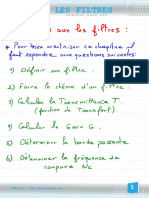 LES FILTRES
sur les filtres :
* Pour bien maitriser ce chapitre il
faut repondre aux questions suivantes
1) Définir un filtre.
2) Faire le shéma d'un filtre.
3) Calculer la Transmittance T.
( Fonction de Transfert )
4) Calculer le Gain G.
5) Déterminer la bande passante.
6) Déterminer la fréquence de
coupure Nc
1